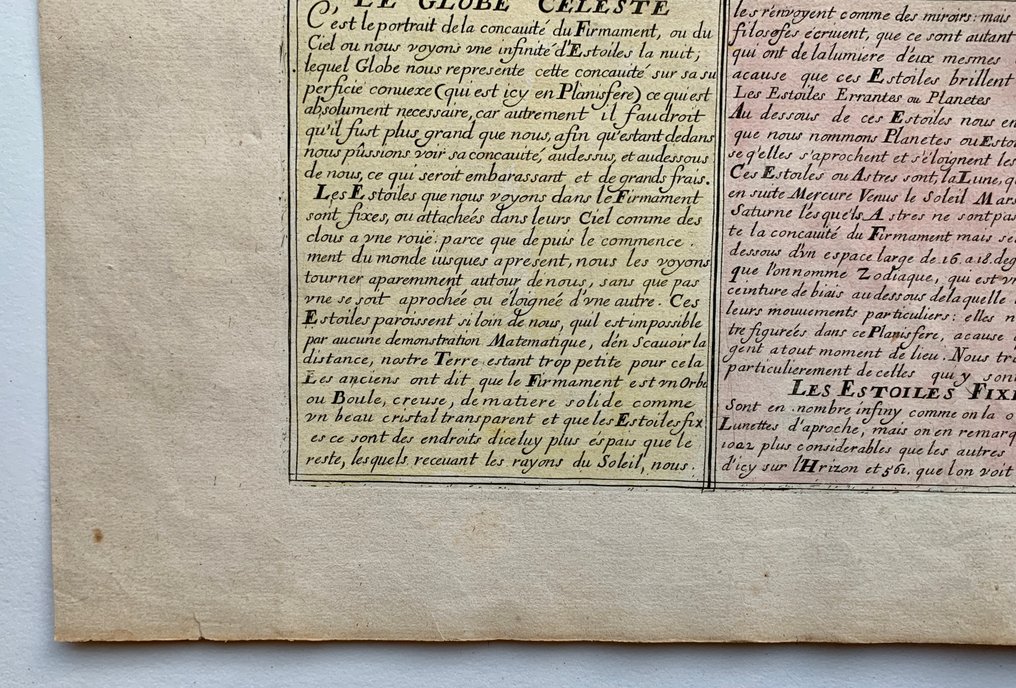 LE GLOBE CELESTE
C'est le portrait de la concauité du Firmament, ou du
Ciel ou nous voyons vne infinité d'Estoiles la nuit;
lequel Globe nous represente cette concauité sur sa su
perficie conuexe (qui est icy en Planisfere) ce qui est
absolument necessaire, car autrement il faudroit
qu'il fust plus grand que nous, afin qu'estant dedans
nous pûssions voir sa concauité, au dessus, et au dessous
de nous, ce qui seroit embarassant et de grands frais.
Les Estoiles que nous voyons dans le Firmament
sont fixes, ou attacheés dans leurs Ciel comme des
clous a vne roüe: parce que depuis le commence.
ment du monde iusques apresent, nous les voyons
tourner aparemment autour de nous, sans que pas
vne se soit aprochée ou eloignée d'vne autre. Ces
Estoiles paroissent si loin de nous, quil est impossible
par aucune demonstration Matematique, dén scauoir la
distance, nostre Terre estant trop petite pour cela
Les anciens ont dit que le Firmament est vn Orbe
ou Boule, creuse, de matiere solide comme
vn beau cristal transparent et que les Estoiles fix
es ce sont des endroits diceluy plus éspais que le
reste, lesquels receuant les rayons du Soleil, nous.
les rénvoyent comme des miroirs: mais
filosofes ecriuent, que ce sont autant
qui ont de la lumiere d'eux mesmes
acause que ces Estoiles brillent
Les Estoiles Errantes ou Planetes
Au dessous de ces Estoiles nous en
que nous nommons Planetes ou Esto
se q'elles s'aprochent et s'éloignent les
Ces Estoiles ou Astres sont, la Lune, q
en suite Mercure Venus le Soleil Mars
Saturne lésquéls Astres ne sont pas
te la concauité du Firmament mais se
dessous d'vn espace large de 16. a 18. deg
que l'on nomme Zodiaque, qui est vn
ceinture de biais au dessous de laquelle
leurs mouuements particuliers: elles n
tre figureés dans ce Planisfere, acause
gent a tout moment de lieu. Nous tr
particulierement de celles qui y sont
LES ESTOILES FIX
Sont en nombre infiny comme on la
Lunettes d'aproche, mais on en remarq
1022 plus considerables que les autres
d'icy sur l'Hrizon et 561. que lon voit